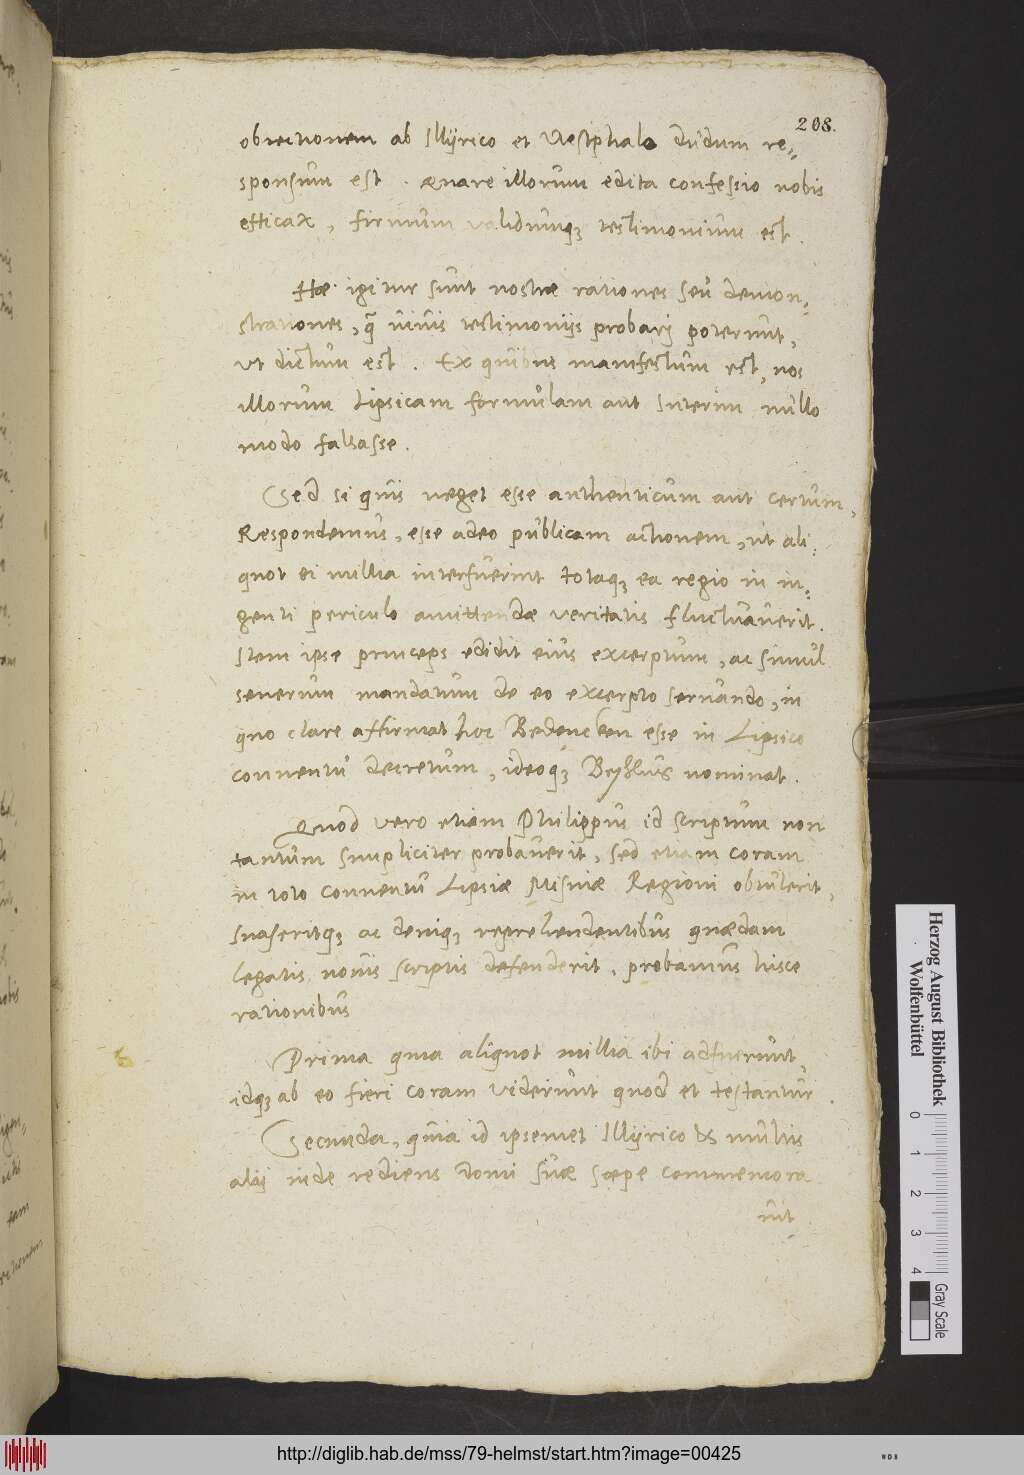 208.
obiectionem ab Illyrico et Vestphalo dudum re=
sponsum est. quare illorum edita confessio nobis
efficax, firmum validumq; testimonium est.
Hæ igitur sunt nostræ rationes seu demon=
strationes, quæ vivis testimonijs probarj poterunt,
vt dictum est. Ex quibus manifestum est, nos
illorum Lipsicam formulam aut Interim nullo
modo falsasse.
Sed si quis neget esse authenticum aut certum,
Respondemus, esse adeo publicam actionem, ut ali=
quot ei millia interfuerint totaq; ea regio in in=
genti periculo amittendæ veritatis fluctuaverit.
Item ipse princeps edidit eius excerptum, ac simul
seuerum mandatum de eo excerpto servando, in
quo clare affirmat hoc Bedencken esse in Lipsico
conuentu decretum, ideoq; nominat.
Quod vero etiam Philippus id scriptum non
tantum simpliciter probaverit, sed etiam coram
in toto conuentu Lipsiæ Misniæ Regioni obtulerit,
suaseritq; ac deniq; reprehendentibus quædam
legatis novis scriptis defenderit, probamus hisce
rationibus
Prima quia aliquot millia ibi adfuerunt,
idq; ab eo fieri coram viderunt quod et testantur.
Secunda, quia id ipsemet Illyrico & multis
alij inde rediens domi suæ sæpe commemora
uit
Herzog August Bibliothek
Wolfenbüttel
0 1 2 3 4
Gray Scale
http://diglib.hab.de/mss/79-helmst/start.htm?image=00425
WDB